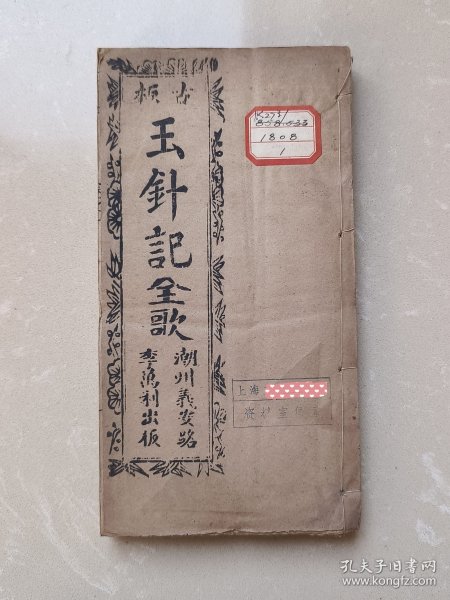 古板
玉針記全歌
潮州義安路
李萬利出板
K271/
858.533
1808
1
上海
资料室
孔夫子旧书网
www.kongfz.com